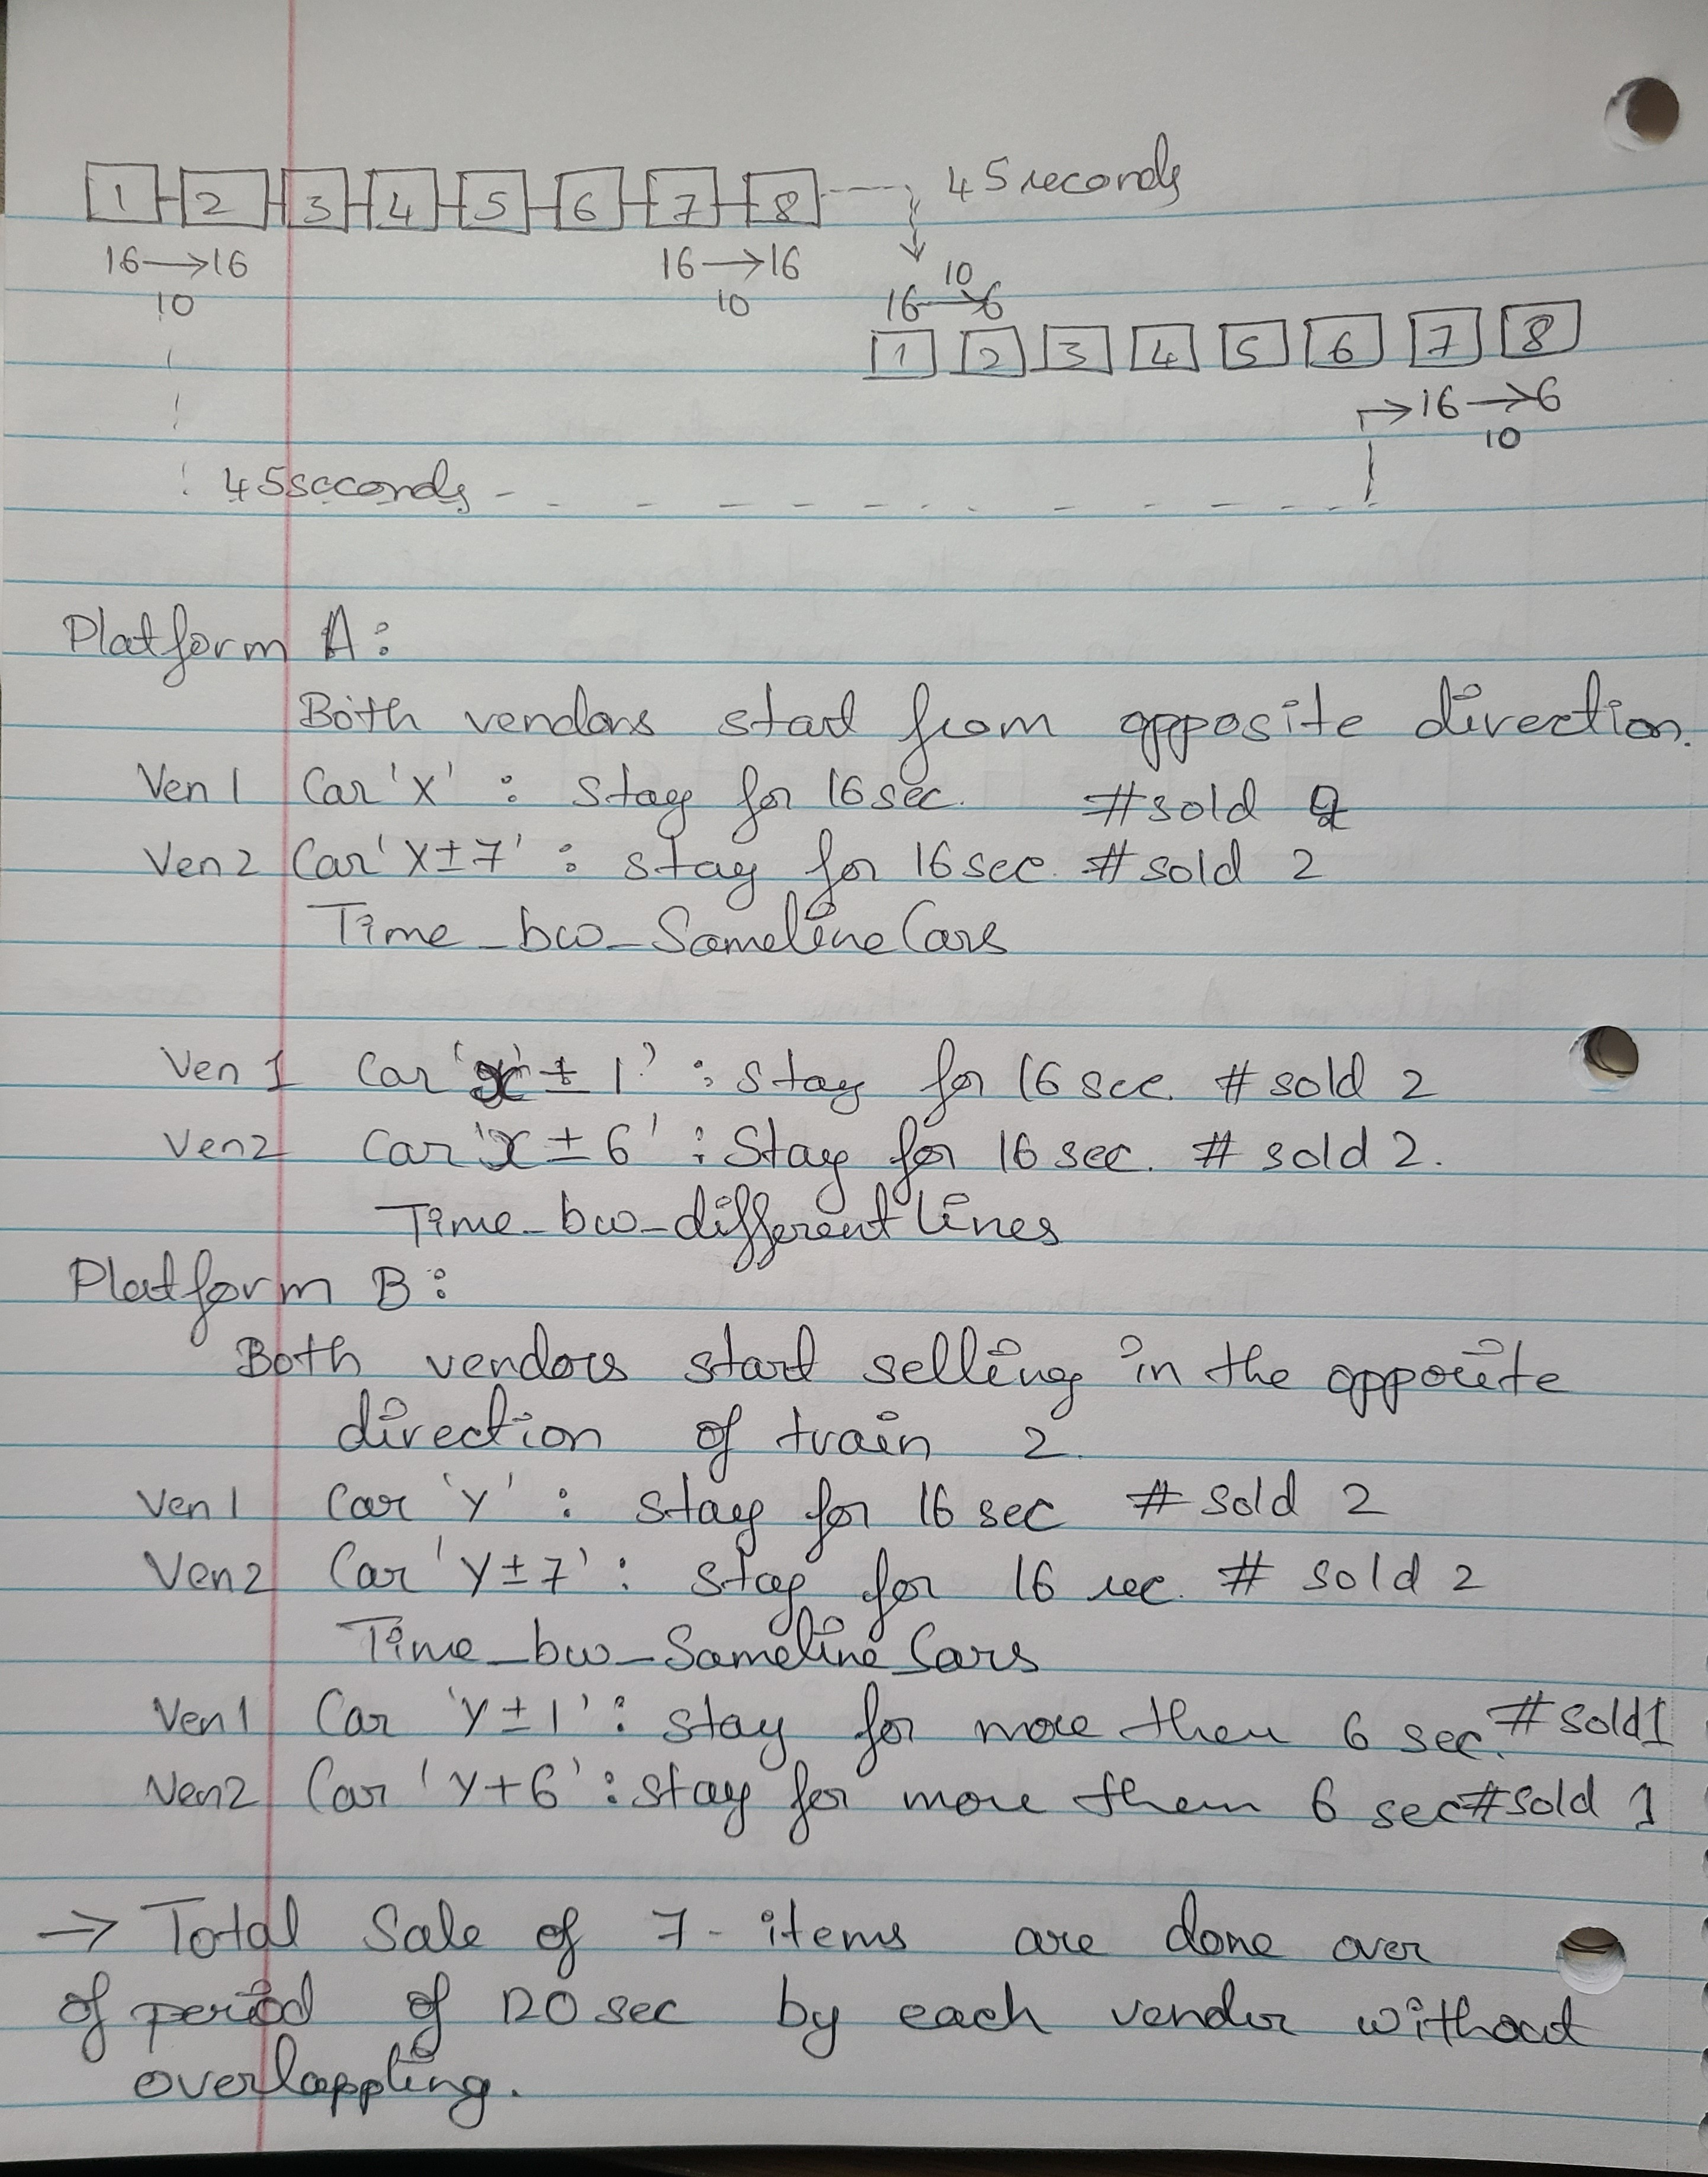 1 2 3 4 5 6 7 8 45 seconds
16→16 16→16
10 10
10
16→6
1 2 3 4 5 6 7 8
→16→6
10
45 seconds
Platform A:
Both vendors start from opposite direction.
Ven 1 Car 'X' : stay for 16 sec. #sold 2
Ven 2 Car 'X±7' : stay for 16 sec. #sold 2
Time_bw_Sameline Cars
Ven 1 Car 'x ± 1' : stay for 16 sec. # sold 2
Ven 2 Car 'x ± 6' : Stay for 16 sec. # sold 2.
Time_bw_different lines
Platform B:
Both vendors start selling in the opposite
direction of train 2.
Ven 1 Car 'Y' : stay for 16 sec # sold 2
Ven 2 Car 'Y±7' : stay for 16 sec. # sold 2
Time_bw_Sameline Cars
Ven 1 Car 'Y±1' : stay for more then 6 sec. #sold 1
Ven 2 Car 'Y+6' : stay for more then 6 sec #sold 1
→ Total Sale of 7-items are done over
of period of 120 sec by each vendor without
overlappling.